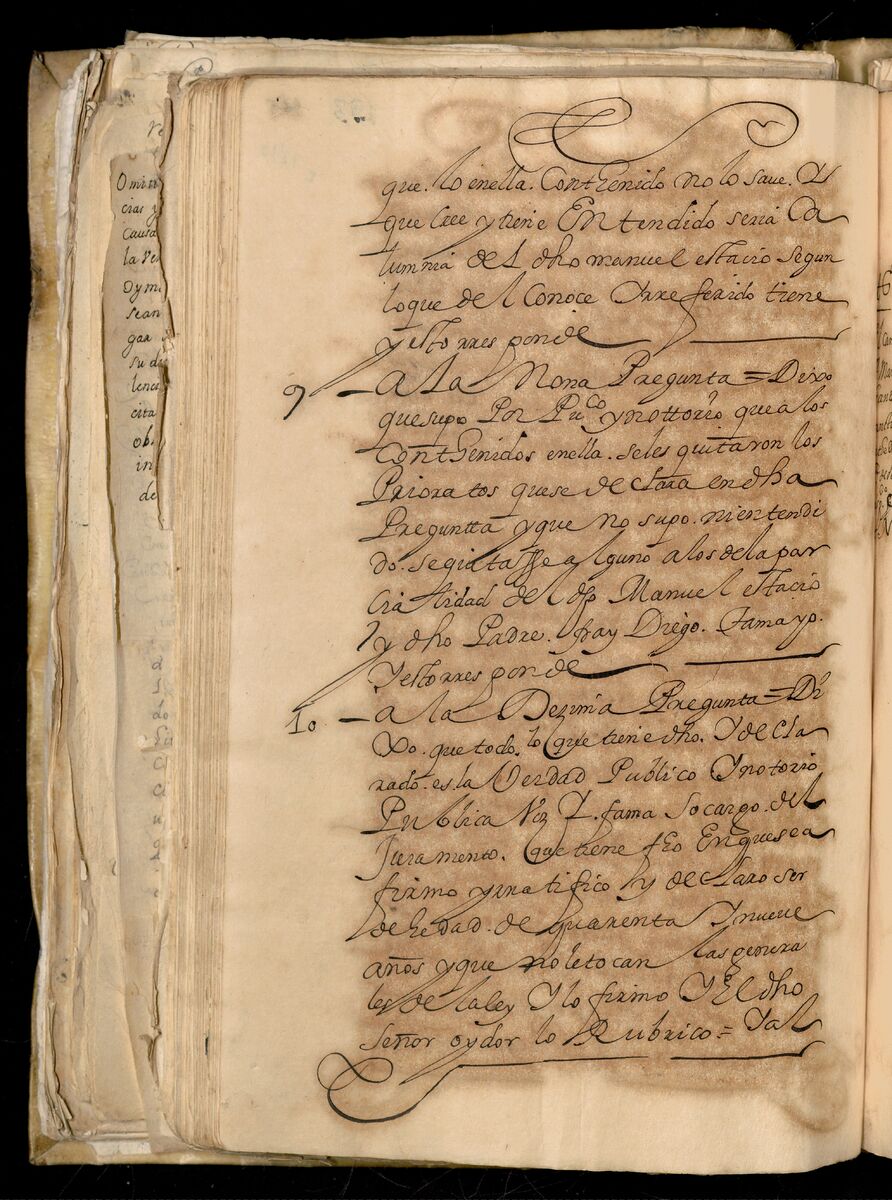 que. lo enella. Conthenido no lo save. Y
que Cree y tiene Entendido seria Ca
lumnia del dho manuel estacio segun
loque del Conoce Y rreferido tiene
y esto rresponde
9 — a la Nona Pregunta = Dixo
que supo Por Puco y nottorio que a los
Conthenidos enella. seles quitaron los
Prioratos quese declara en dha
Preguntta y que no supo. nientendi
do. se quitasse a lguno a los de la par
cialidad del dho Manuel estacio
y dho Padre. fray Diego. Tamayo.
Y esto rresponde
10 — a la Dezima Pregunta = Di
xo. que todo. lo que tiene dho. Y decla
rado. es la Verdad Publico Y notorio
Publica Voz Y. fama so cargo. del
Juramento. que tiene fho En que se a
firmo y rratifico y declaro ser
de hedad. de quarenta Y nueve
años y que no le tocan las genera
les de la ley Y lo firmo Y El dho
señor oydor lo Rubrico =
Omiti
cias y
causa
la ve
oy mi
sean
gar
su di
lenci
cita
ob
in
de